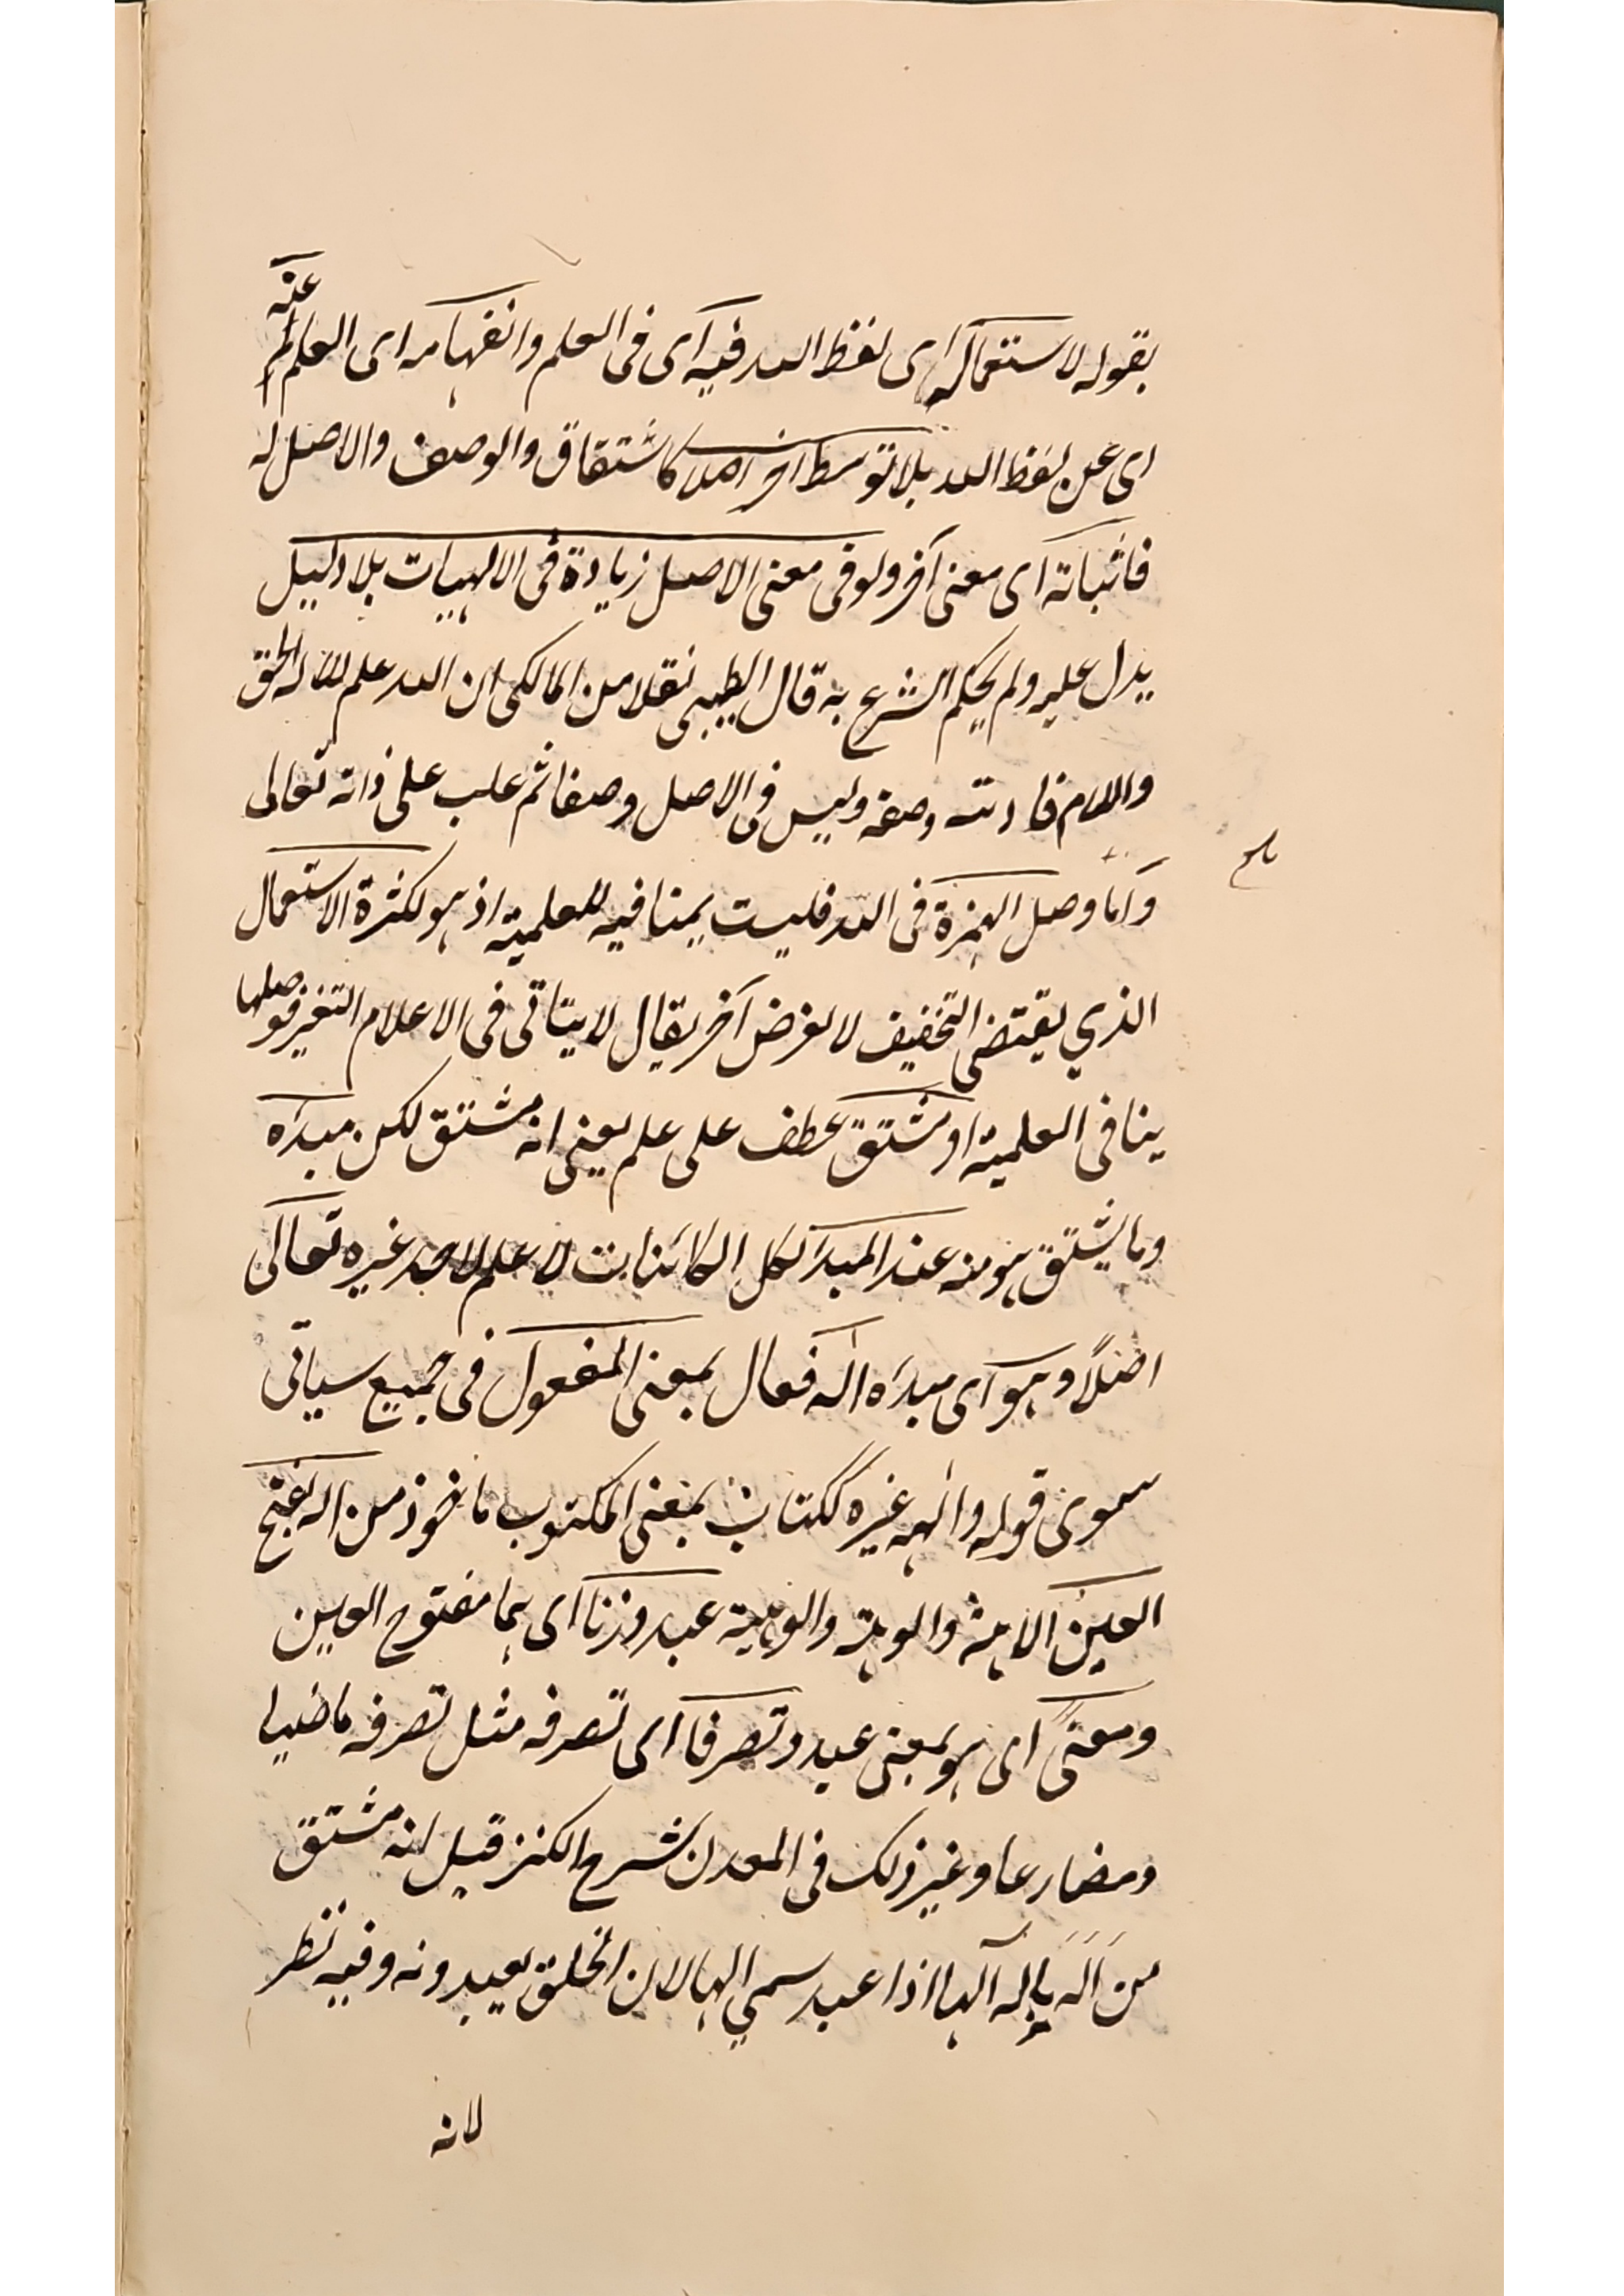 بقوله لاستعماله ای لفظ الله فیه ای فی العلم وانفهامه ای العلم عنه
ای عن لفظ الله بلا توسط آخر اصلا کاشتقاق والوصف والاصل له
فاثباته ای معنی آخر ولو فی معنی الاصل زیادة فی الالهیات بلا دلیل
یدل علیه ولم یحکم الشرع به قال الطیبی نقلا من المالکی ان الله علم للاله الحق
واللام قارنت وضعه ولیس فی الاصل وصفا ثم غلب علی ذاته تعالی
واما وصل الهمزة فی الله فلیست بمنافیه للعلمیة اذ هو لکثرة الاستعمال
الذی یقتضی التخفیف لا لغرض آخر یقال لا یتاتی فی الاعلام التغیر فوصلها
ینافی العلمیة او مشتق عطف علی علم یعنی انه مشتق لکن مبدءه
وما یشتق هو منه عند المبدء لکل الکائنات لا علم لاحد غیره تعالی
اصلا وهو ای مبدءه اله فعال بمعنی المفعول فی جمیع سیاتی
سوی قوله والهه غیره ککتاب بمعنی المکتوب ماخوذ من اله بفتح
العین الالهة والوهة والوهیة عبد وزنا ای هما مفتوح العین
ومعنی ای هو بمعنی عبد وتصرفا ای تصرفه مثل تصرفه ماضیا
ومضارعا وغیر ذلک فی المعدن شرح الکنز قیل انه مشتق
من اله یاله الها اذا عبد سمی الها لان الخلق یعبدونه وفیه نظر
لانه